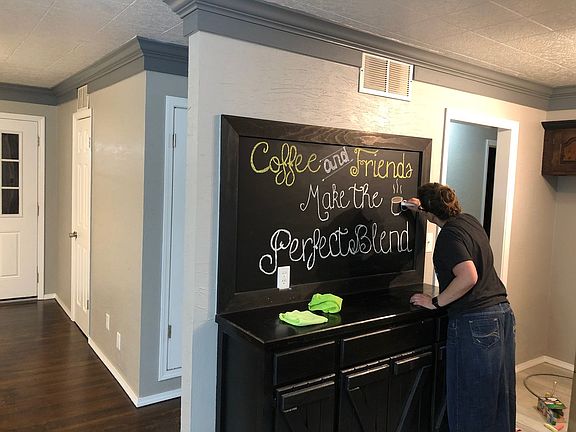 Coffee and Friends
Make the
Perfect Blend